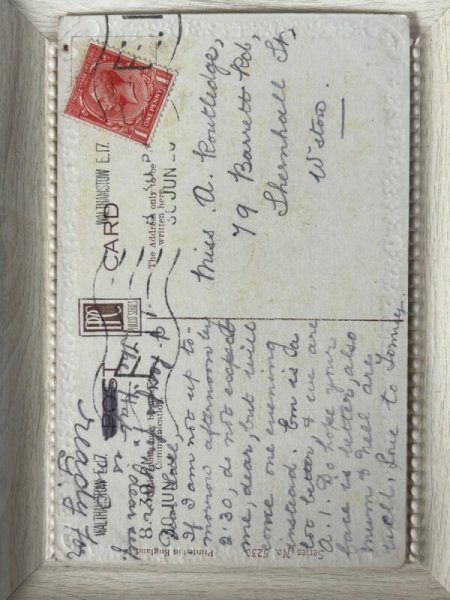 POST CARD
WALTHAMSTOW E.17.
WALTHAMSTOW E.17.
30 JUN
30 JUN
ONE PENNY
1 1
Communication
The Address only to be
written here
The Hat is
ready for
dear if
Dear
If I am not up to-
morrow afternoon by
2.30, do not expect
me, dear, but will
come one evening
instead. Tom is a
lot better & we are
A.1. Do hope your
face is better, also
Mum & Nell are
well, Love to Tommy.
Miss. A. Routledge,
79 Barrett Rd,
Shernhall St,
W'stow.
Series No.
Printed in England